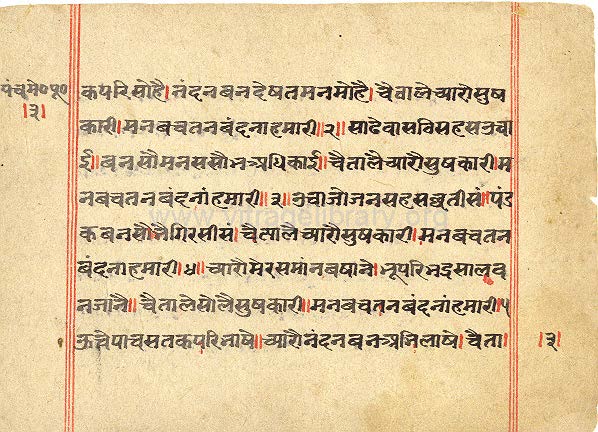 पंचमे०पु०
।३।
कपरिसोहै।नंदनबनदेषतमनमोहै।चैत्यालैचारौसुष
कारी।मनबचतनबंदनाहमारी।२॥साढेबासठिसहसऊचा
ई।बनसौमनससौभअधिकाई।चैतालैचारौसुषकारी।म
नबचतनबंदनांहमारी॥३॥ऊचाजोजनसहसछतीसं।पंड
कबनसौनैगिरसीसं।चैत्यालैचारौसुषकारी।मनबचतन
बंदनाहमारी॥४॥चारौमेरसमांनबषाने।भूपरिभद्रसालव
नजांनै॥चैतालेसोलैसुषकारी।मनबचतनबंदनांहमारी।५
ऊचैपाचसतकपरिभाषे॥चारौनंदनबनअभिलाषे।चैता।
।३।
www.vitragelibrary.org